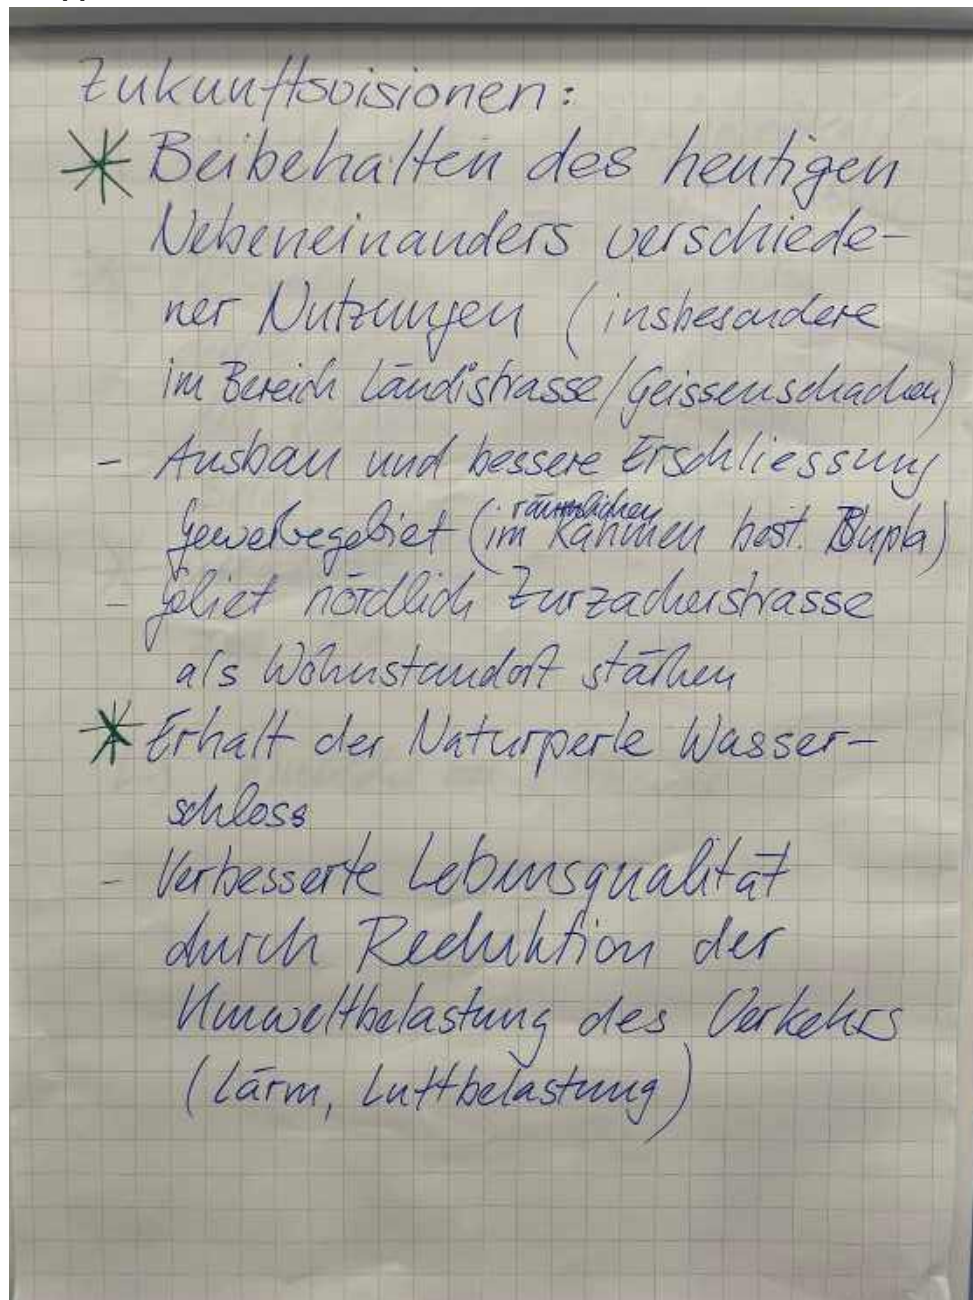 Zukunftsvisionen:
* Beibehalten des heutigen
Nebeneinanders verschiede-
ner Nutzungen (insbesondere
im Bereich Ländistrasse/Geissenschachen)
- Ausbau und bessere Erschliessung
räumlichen
Gewerbegebiet (im Rahmen best. Bupla)
- Gebiet nördlich Zurzacherstrasse
als Wohnstandort stärken
* Erhalt der Naturperle Wasser-
schloss
- Verbesserte Lebensqualität
durch Reduktion der
Umweltbelastung des Verkehrs
(Lärm, Luftbelastung)